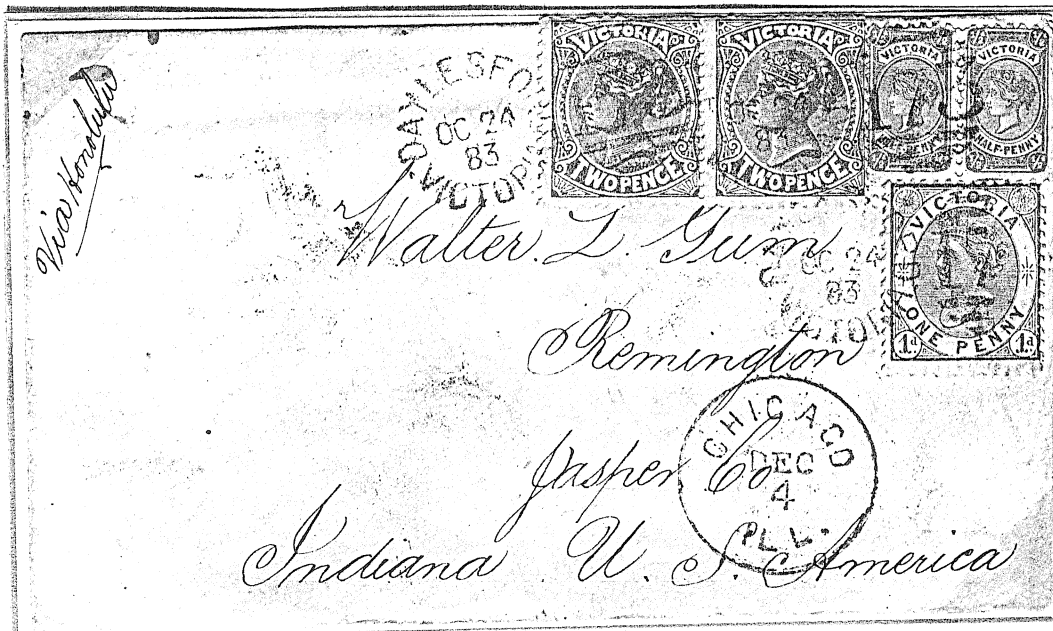 Via Honolulu
DAYLESFO
OC 24
83
VICTORIA
VICTORIA
TWOPENCE
VICTORIA
TWOPENCE
VICTORIA
HALF-PENNY
VICTORIA
HALF-PENNY
VICTORIA
ONE PENNY
1d 1d
OC 24
83
Walter. L. Gum
Remington
Jasper Co
Indiana U. S. America
CHICAGO
DEC
4
ILL.